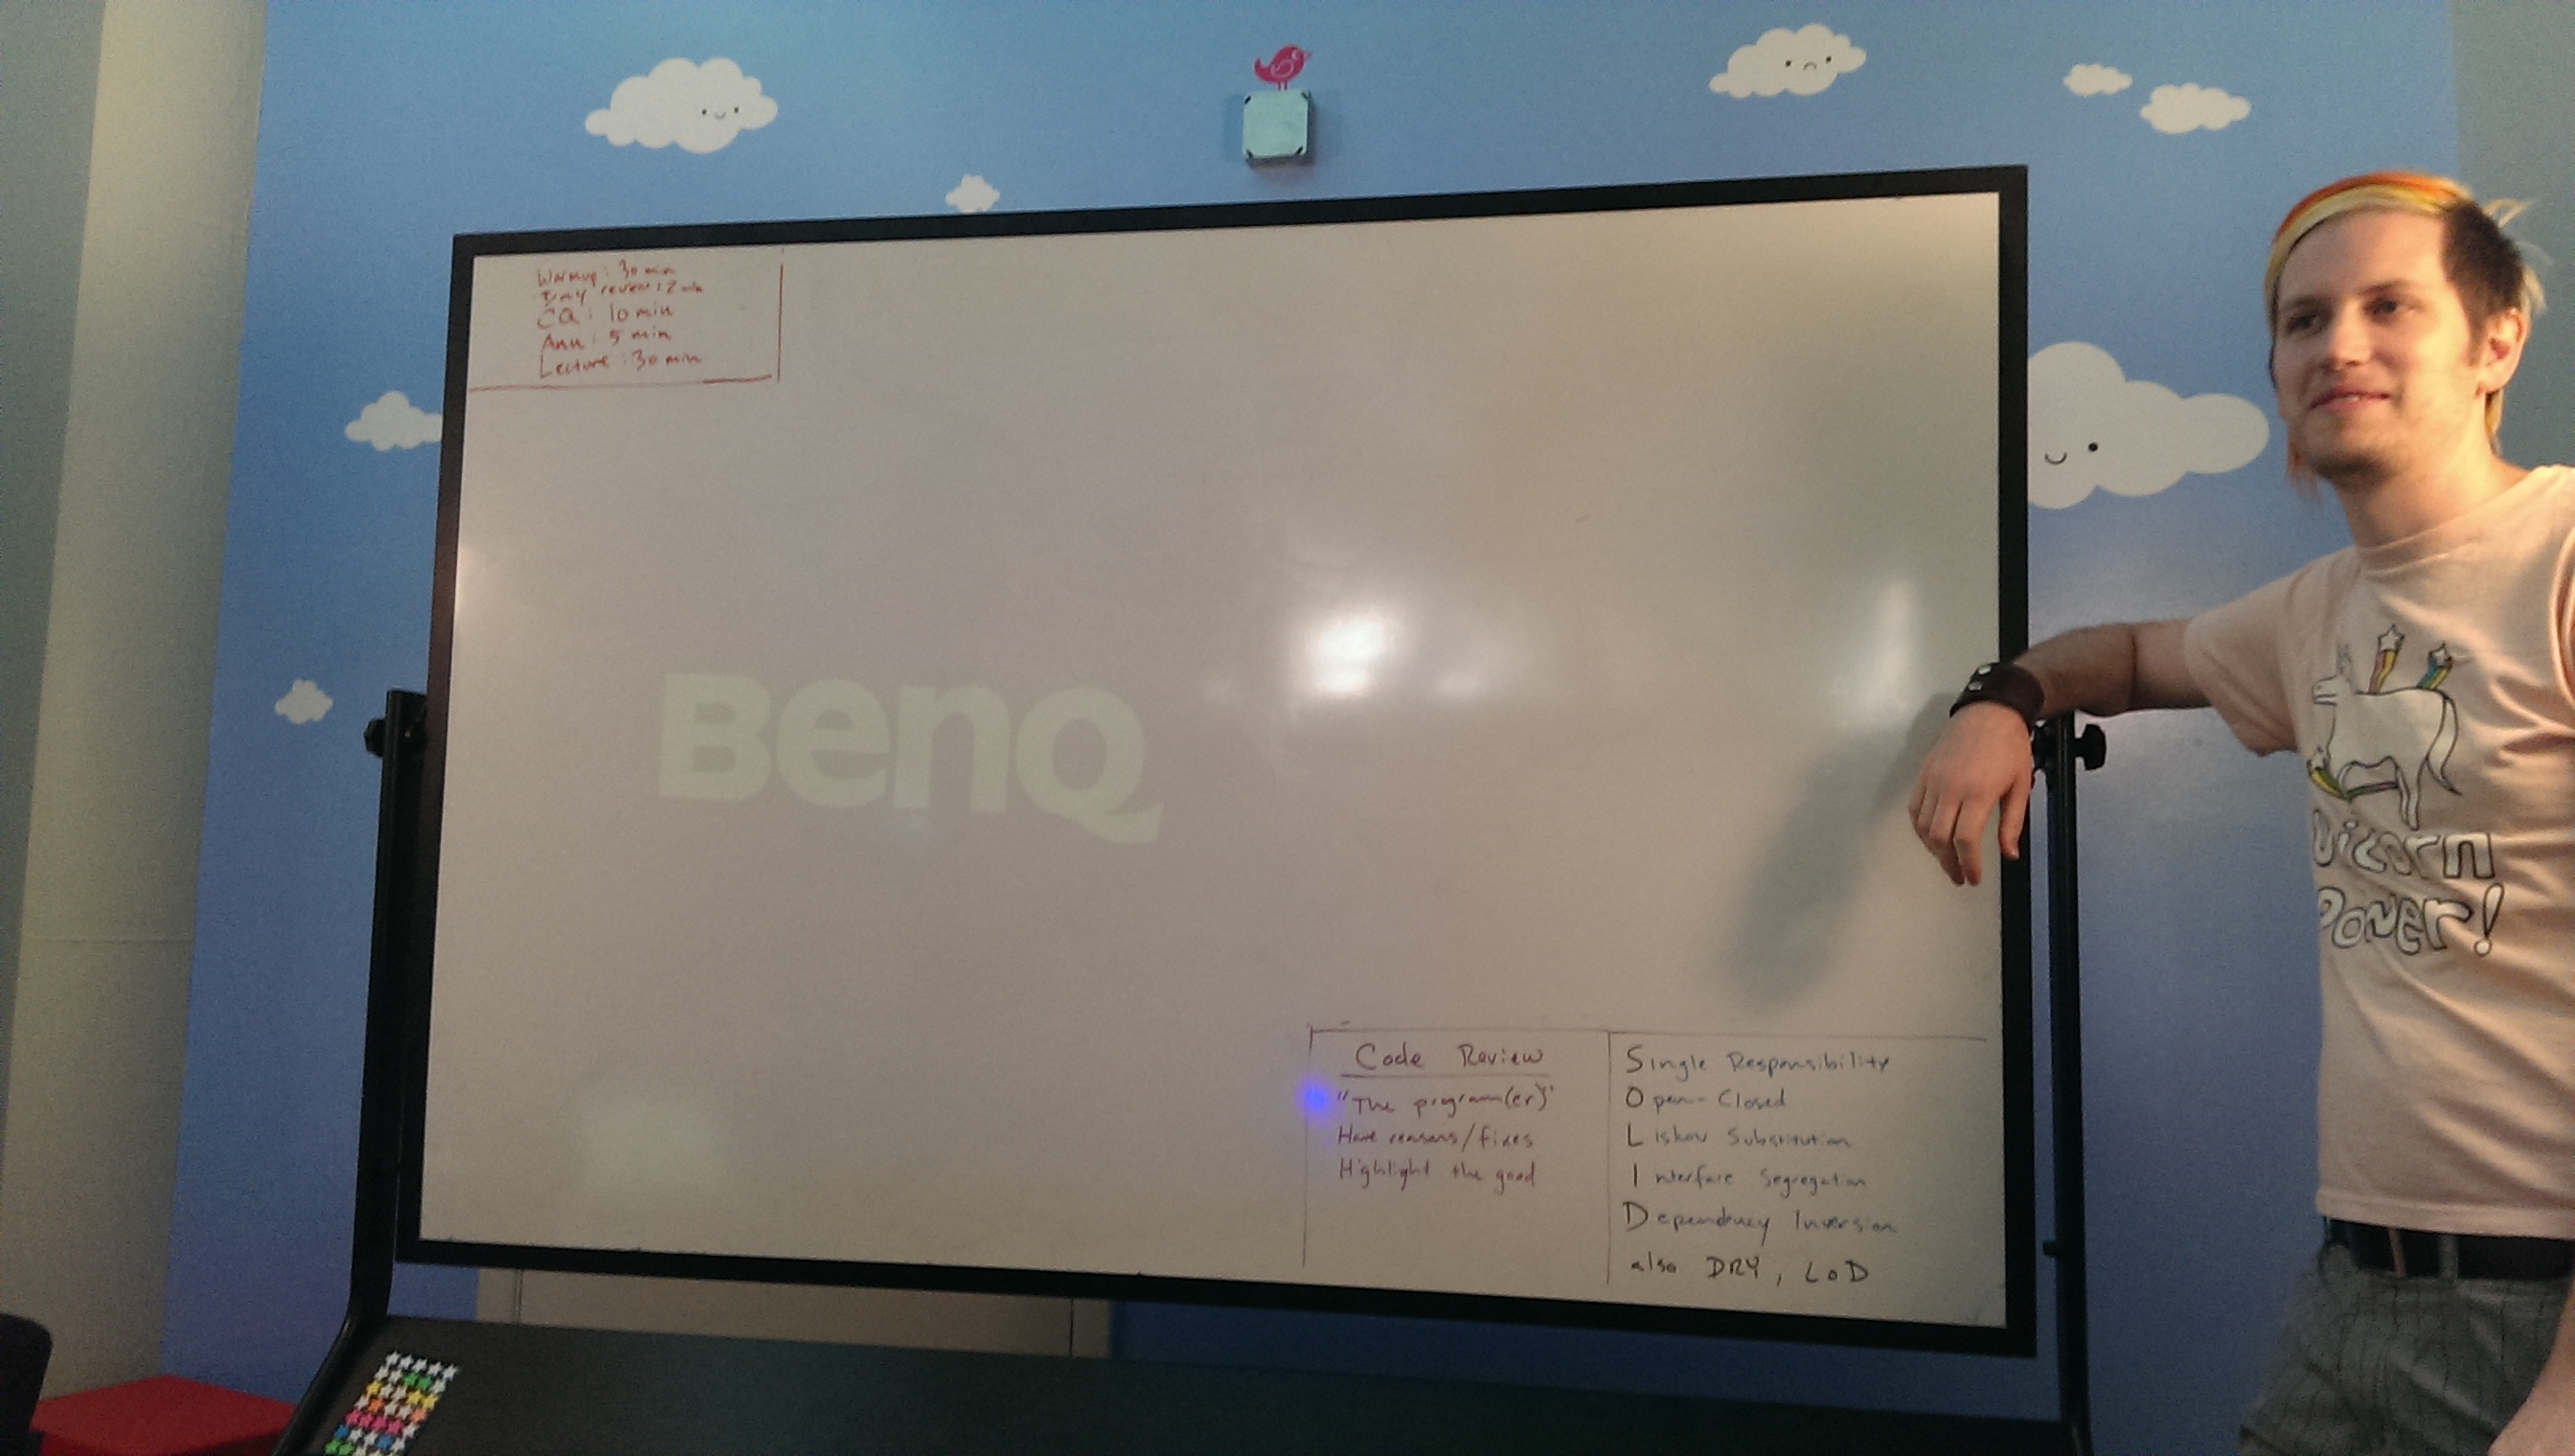 Warmup: 30 min
review: 2 min
CQ: 10 min
Ann: 5 min
Lecture: 30 min
BenQ
Code Review
"The program(er)"
Have reasons/fixes
Highlight the good
Single Responsibility
Open-Closed
Liskov Substitution
Interface Segregation
Dependency Inversion
also DRY, LoD
Unicorn
Power!